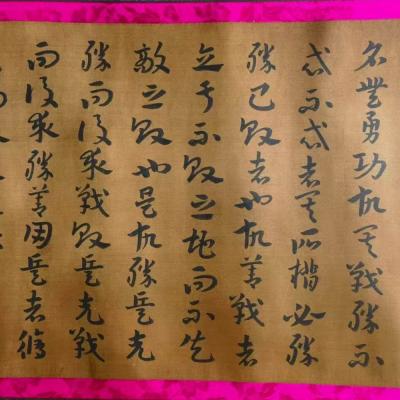 名無勇功故其戰勝不
忒不忒者其所措必勝
勝已敗者也故善戰者
立于不敗之地而不失
敵之敗也是故勝兵先
勝而後求戰敗兵先戰
而後求勝善用兵者修